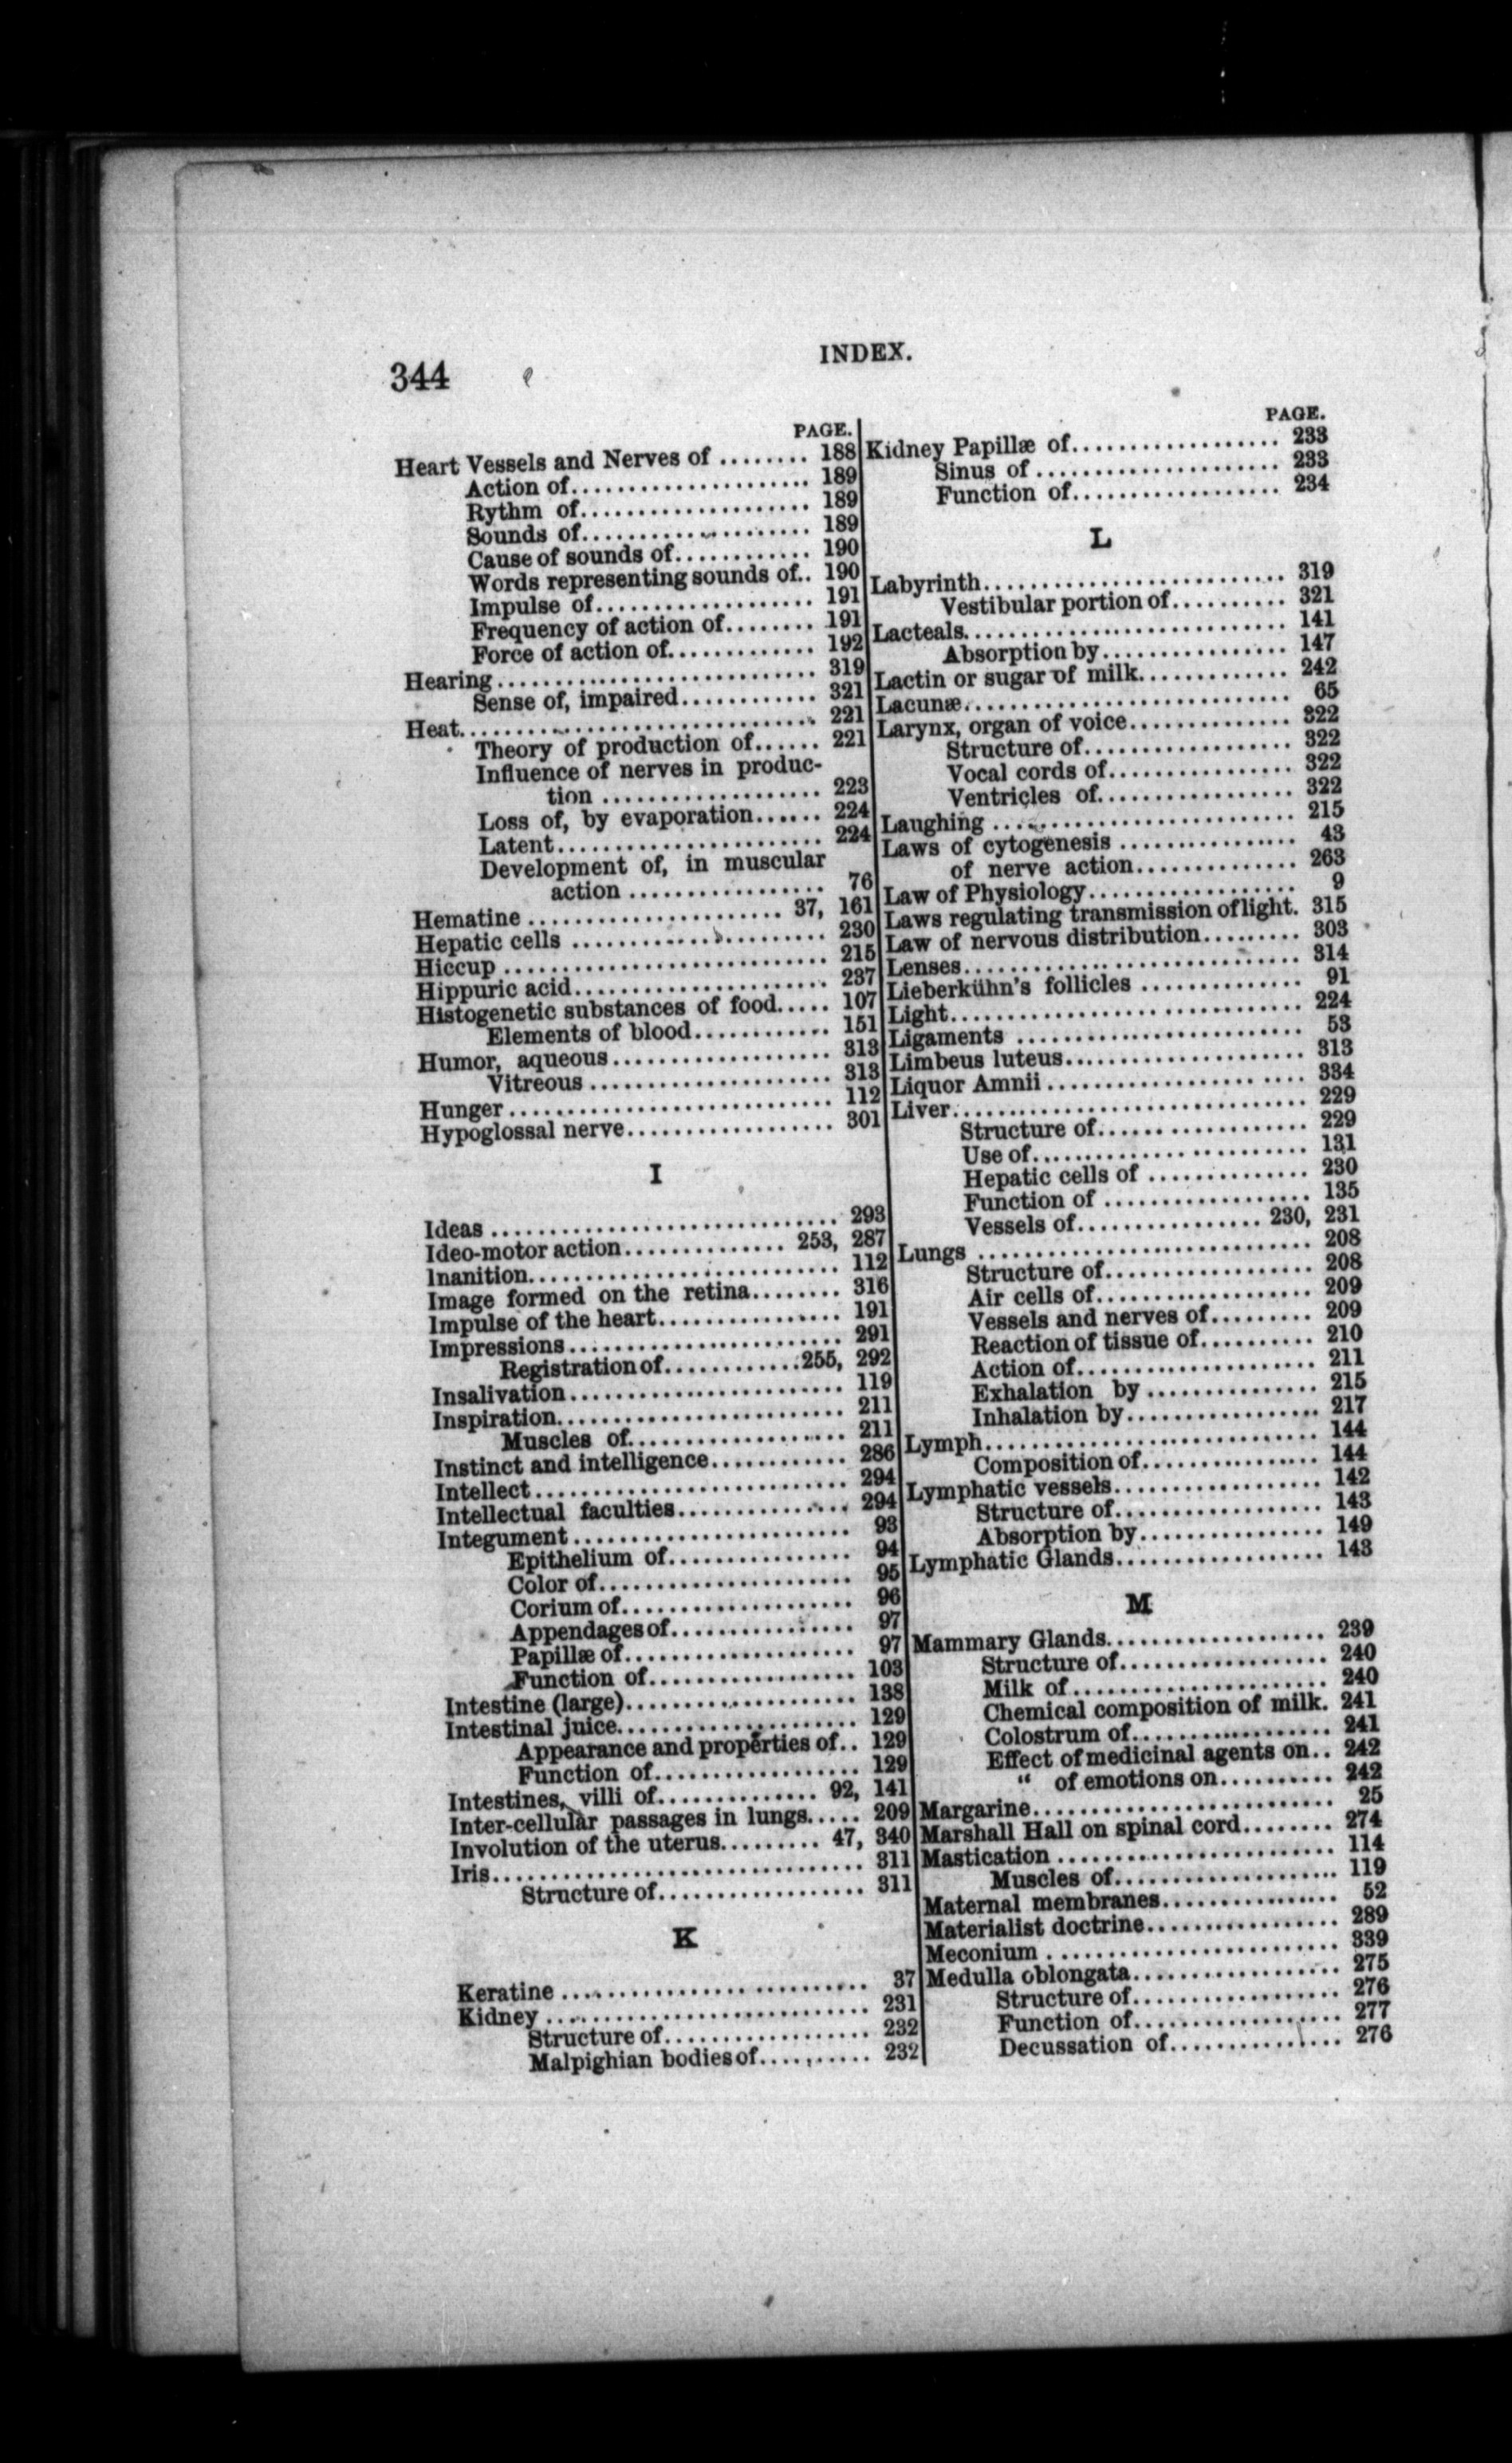 344
INDEX.
PAGE.
Heart Vessels and Nerves of ........ 188
Action of..................... 189
Rythm of.................... 189
Sounds of.................... 189
Cause of sounds of............ 190
Words representing sounds of.. 190
Impulse of................... 191
Frequency of action of........ 191
Force of action of............. 192
Hearing........................... 319
Sense of, impaired............ 321
Heat.............................. 221
Theory of production of...... 221
Influence of nerves in produc-
tion ................... 223
Loss of, by evaporation...... 224
Latent....................... 224
Development of, in muscular
action ................. 76
Hematine ...................... 37, 161
Hepatic cells ...................... 230
Hiccup ............................ 215
Hippuric acid...................... 237
Histogenetic substances of food..... 107
Elements of blood............ 151
Humor, aqueous................... 313
Vitreous..................... 313
Hunger............................ 112
Hypoglossal nerve.................. 301
I
Ideas .............................. 293
Ideo-motor action.............. 253, 287
Inanition........................... 112
Image formed on the retina........ 316
Impulse of the heart................ 191
Impressions........................ 291
Registration of............255, 292
Insalivation........................ 119
Inspiration......................... 211
Muscles of................... 211
Instinct and intelligence............ 286
Intellect........................... 294
Intellectual faculties............... 294
Integument........................ 93
Epithelium of................ 94
Color of...................... 95
Corium of.................... 96
Appendages of................ 97
Papillæ of.................... 97
Function of.................. 103
Intestine (large).................... 138
Intestinal juice..................... 129
Appearance and properties of.. 129
Function of.................. 129
Intestines, villi of.............. 92, 141
Inter-cellular passages in lungs..... 209
Involution of the uterus......... 47, 340
Iris................................ 311
Structure of.................. 311
K
Keratine ........................... 37
Kidney ............................ 231
Structure of.................. 232
Malpighian bodies of.......... 232
PAGE.
Kidney Papillæ of.................. 233
Sinus of ..................... 233
Function of.................. 234
L
Labyrinth.......................... 319
Vestibular portion of.......... 321
Lacteals............................ 141
Absorption by................ 147
Lactin or sugar of milk............. 242
Lacunæ............................ 65
Larynx, organ of voice.............. 322
Structure of.................. 322
Vocal cords of................ 322
Ventricles of................. 322
Laughing .......................... 215
Laws of cytogenesis ................ 43
of nerve action.............. 263
Law of Physiology.................. 9
Laws regulating transmission of light. 315
Law of nervous distribution......... 303
Lenses............................. 314
Lieberkühn's follicles .............. 91
Light.............................. 224
Ligaments ......................... 53
Limbeus luteus..................... 313
Liquor Amnii...................... 334
Liver............................... 229
Structure of.................. 229
Use of........................ 131
Hepatic cells of .............. 230
Function of .................. 135
Vessels of................ 230, 231
Lungs ............................. 208
Structure of.................. 208
Air cells of................... 209
Vessels and nerves of......... 209
Reaction of tissue of.......... 210
Action of..................... 211
Exhalation by ............... 215
Inhalation by................. 217
Lymph............................. 144
Composition of................ 144
Lymphatic vessels.................. 142
Structure of.................. 143
Absorption by................ 149
Lymphatic Glands.................. 143
M
Mammary Glands................... 239
Structure of.................. 240
Milk of....................... 240
Chemical composition of milk. 241
Colostrum of................. 241
Effect of medicinal agents on.. 242
“ of emotions on.......... 242
Margarine.......................... 25
Marshall Hall on spinal cord........ 274
Mastication ........................ 114
Muscles of.................... 119
Maternal membranes................ 52
Materialist doctrine................. 289
Meconium ......................... 339
Medulla oblongata.................. 275
Structure of.................. 276
Function of.................. 277
Decussation of............... 276